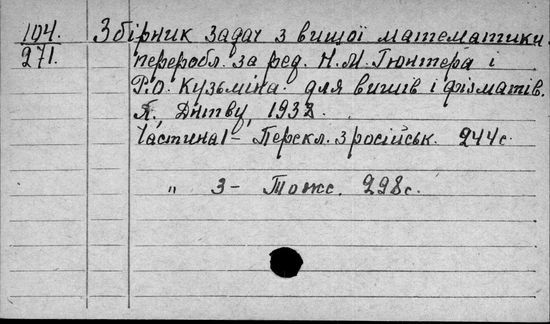 104. Збірник задач з вищої математики
271. переробл. за ред. Н.М. Гюнтера і
Р.О. Кузьміна. для вишів і фізматів.
Л. Днтву, 193
Частина 1 – Перекл. з російськ. 244 с.
„ 3 – Тоже. 228 с.